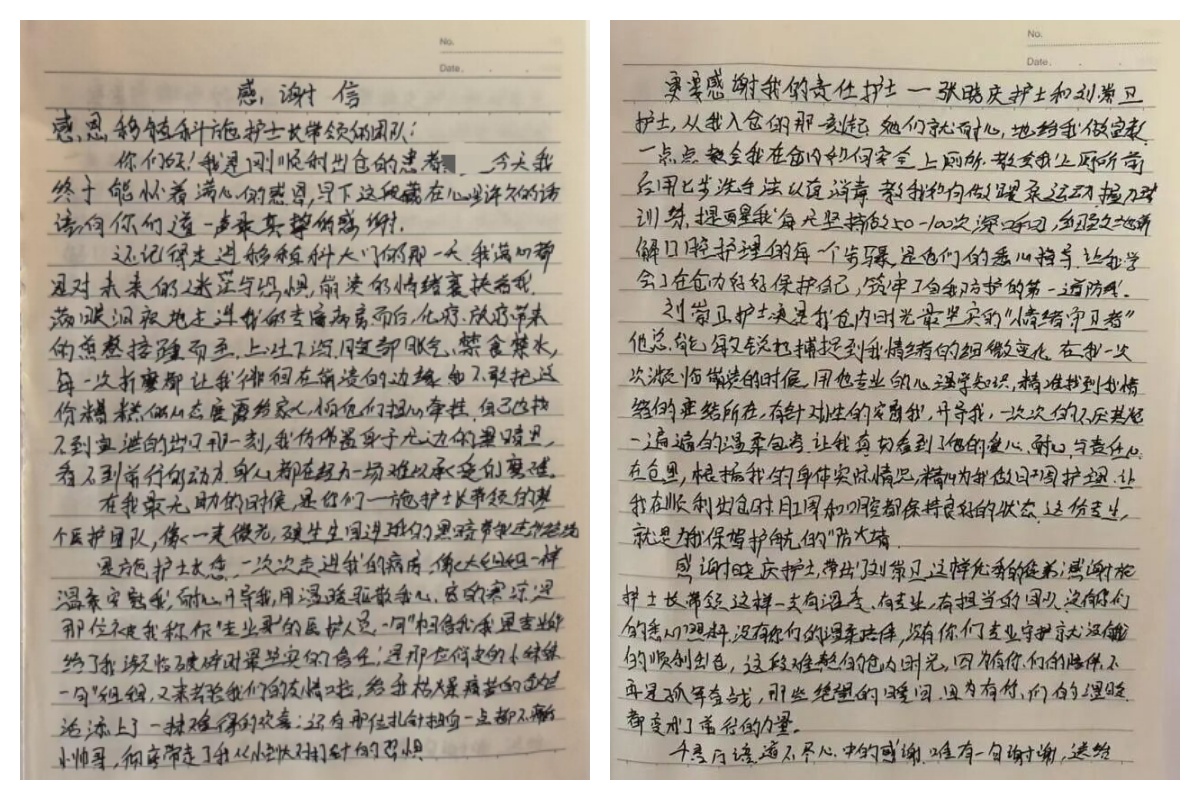 No.
Date.
感谢信
感恩移植科施护士长带领的团队:
你们好!我是刚顺利出仓的患者 今天我
终于能怀着满心的感恩,写下这段藏在心里许久的话
语向你们道一声最真挚的感谢.
还记得走进移植科大门的那一天 我满心都
是对未来的迷茫与恐惧,崩溃的情绪裹挟着我.
满眼泪 地走进我的 病房而后,化疗、放疗带来
的煎熬接踵而至.上吐下泻,腹部胀气、禁食禁水,
每一次折磨都让我徘徊在崩溃的边缘 又不敢把这
份糟糕的心态 露给家人,怕他们担心牵挂.自己也找
不到 的出口那一刻,我仿佛置身于无边的黑暗里,
看不到前行的动力 身心都在经历一场难以承受的磨难.
在我最无助的时候,是你们一施护士长带领的整
个医护团队,像一束微光,硬生生闯进我的黑暗带我走出
是施护士长您,一次次走进我的病房 像大姐姐一样
温柔安慰我,耐心开导我,用温暖驱散我心底的寒凉 是
那位 我称作"专业哥"的医护人员一句"相信我,我是专业的"
给了我濒临破碎时最坚实的信任;是那位 的小妹妹
一句"姐姐, 我们的友情 ,给我枯燥痛苦的
添上了一抹难得的欢喜;还有那位扎针 一点都不痛的
小帅哥,彻底带走了我从小惧怕打针的恐惧
No.
Date.
更要感谢我的责任护士一张晓庆护士和刘崇卫
护士,从我入仓的那一刻起 她们就耐心地给我做宣教
一点点教会我在仓内如何安全上厕所.教会我上厕所前
后用七步洗手法以及消毒 教我如何做踝泵运动 握力球
训练,提醒我每天坚持做50-100次深呼吸, 讲
解口腔护理的每一个步骤 是他们的悉心指导.让我学
会了在仓内好好保护自己,筑牢了自我防护的第一道防线.
刘崇卫护士更是我仓内时光最坚实的"情绪守卫者"
他总能敏锐地捕捉到我情绪的细微变化 在我一次
次濒临崩溃的时候 用他专业的心理学知识,精准找到我情
绪的症结所在,有针对性的安慰我,开导我,一次次的不厌其烦
一遍遍的温柔包容.让我真切看到了他的爱心、耐心、与责任心
在仓里,根据我的身体实际情况,精心为我做口腔肛周护理.让
我在顺利出仓时肛周和口腔都保持良好的状态.这份专业,
就是为我保驾护航的"防火墙.
感谢晓庆护士,带出了刘崇卫这样优秀的徒弟;感谢施
护士长带领这样一支有温度、有专业,有担当的团队 没有你们
的悉心照料,没有你们的温柔陪伴,没有你们专业守护就没有我
的顺利出仓,这段难熬的仓内时光,因为有你们的陪伴 不
再是孤军奋战,那些绝望的瞬间.因为有你们的温暖
都变成了前行的力量.
千言万语道不尽心中的感谢.唯有一句谢谢,送给